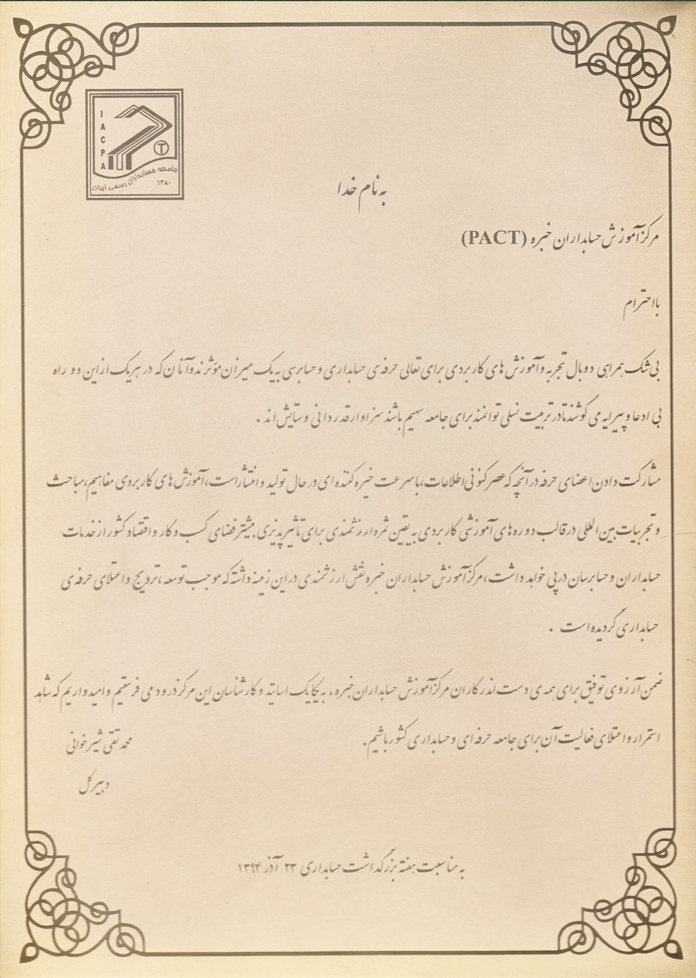 I
A
C
P
A
جامعه حسابداران رسمی ایران
۱۳۸۰
به نام خدا
مرکز آموزش حسابداران خبره (PACT)
با احترام
بی شک همراهی دو بال تجربه و آموزش های کاربردی برای تعالی حرفه ی حسابداری و حسابرسی به یک میزان مؤثرند و آنان که در هر یک از این دو راه
بی ادعا و پیرایه می کوشند تا در تربیت نسلی توانمند برای جامعه سهیم باشند سزاوار قدردانی و ستایش اند .
مشارکت دادن اعضای حرفه در آنچه که عصر کنونی اطلاعات، با سرعت خیره کننده ای در حال تولید و انتشار است، آموزش های کاربردی مفاهیم، مباحث
و تجربیات بین المللی در قالب دوره های آموزشی کاربردی به یقین ثمره ارزشمندی برای تاثیرپذیری بیشتر فضای کسب و کار و اقتصاد کشور از خدمات
حسابداران و حسابرسان در پی خواهد داشت، مرکز آموزش حسابداران خبره نقش ارزشمندی در این زمینه داشته که موجب توسعه، ترویج و اعتلای حرفه ی
حسابداری گردیده است .
ضمن آرزوی توفیق برای همه ی دست اندرکاران مرکز آموزش حسابداران خبره، به یکایک اساتید و کارشناسان این مرکز درود می فرستیم و امیدواریم که شاهد
استمرار و اعتلای فعالیت آن برای جامعه حرفه ای و حسابداری کشور باشیم.
محمد تقی شیرخوانی
دبیرکل
به مناسبت هفته بزرگداشت حسابداری ۲۳ آذر ۱۳۹۴